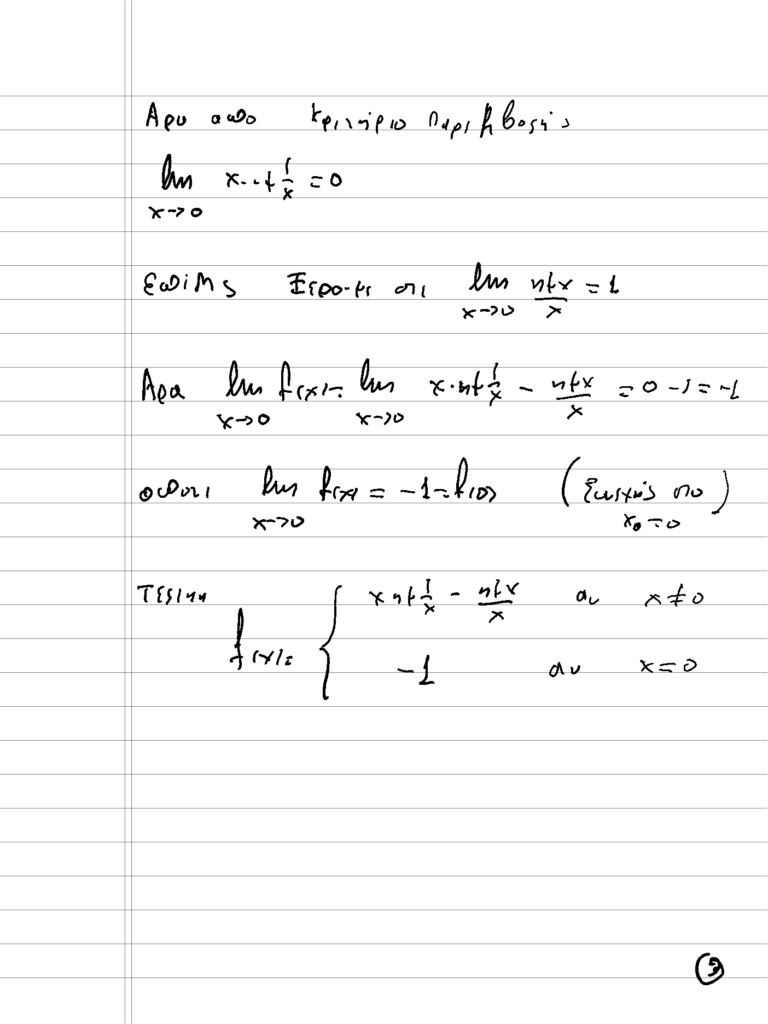 Αρα από κριτήριο παρεμβολής
lim x→0 x·ημ 1/x = 0
Επίσης ξερουμε οτι lim x→0 ημx/x = 1
Αρα lim x→0 f(x) = lim x→0 x·ημ 1/x - ημx/x = 0 - 1 = -1
οποτε lim x→0 f(x) = -1 = f(0) (συνεχής στο x₀=0)
Τελικα f(x) = { x ημ 1/x - ημx/x αν x ≠ 0
-1 αν x = 0